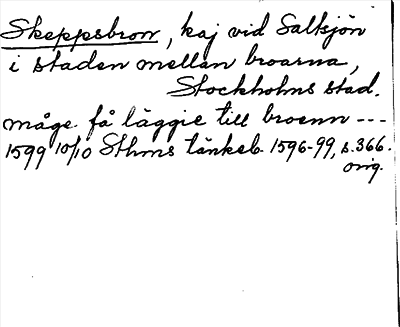 Skeppsbron, kaj vid Saltsjön
i staden mellan broarna,
Stockholms stad.
måge få läggie till broenn ---
1599 10/10 Sthms tänkeb. 1596-99, s. 366.
orig.